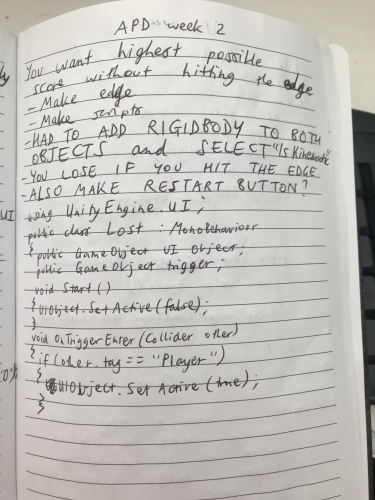 APD week 2
You want highest possible
score without hitting the edge
- Make edge
- Make scripts
- HAD TO ADD RIGIDBODY TO BOTH
OBJECTS and SELECT "Is Kinematic"
- YOU LOSE IF YOU HIT THE EDGE
- ALSO MAKE RESTART BUTTON?
using UnityEngine.UI;
public class Lost : MonoBehaviour
{ public GameObject UI Object;
public GameObject trigger;
void Start()
{ UIObject.Set Active (false);
}
void OnTriggerEnter (Collider other)
{ if (other.tag == "Player")
{ UIObject.Set Active (true);
}
}